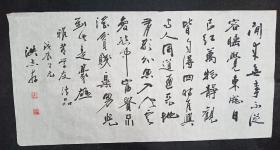 閒來無事不從
容睡覺東窗日
已紅萬物靜觀
皆自得四時佳興
與人同道通天地
有形外思入風雲
變態中富貴不
淫貧賤樂男兒
到此是豪雄
戊辰